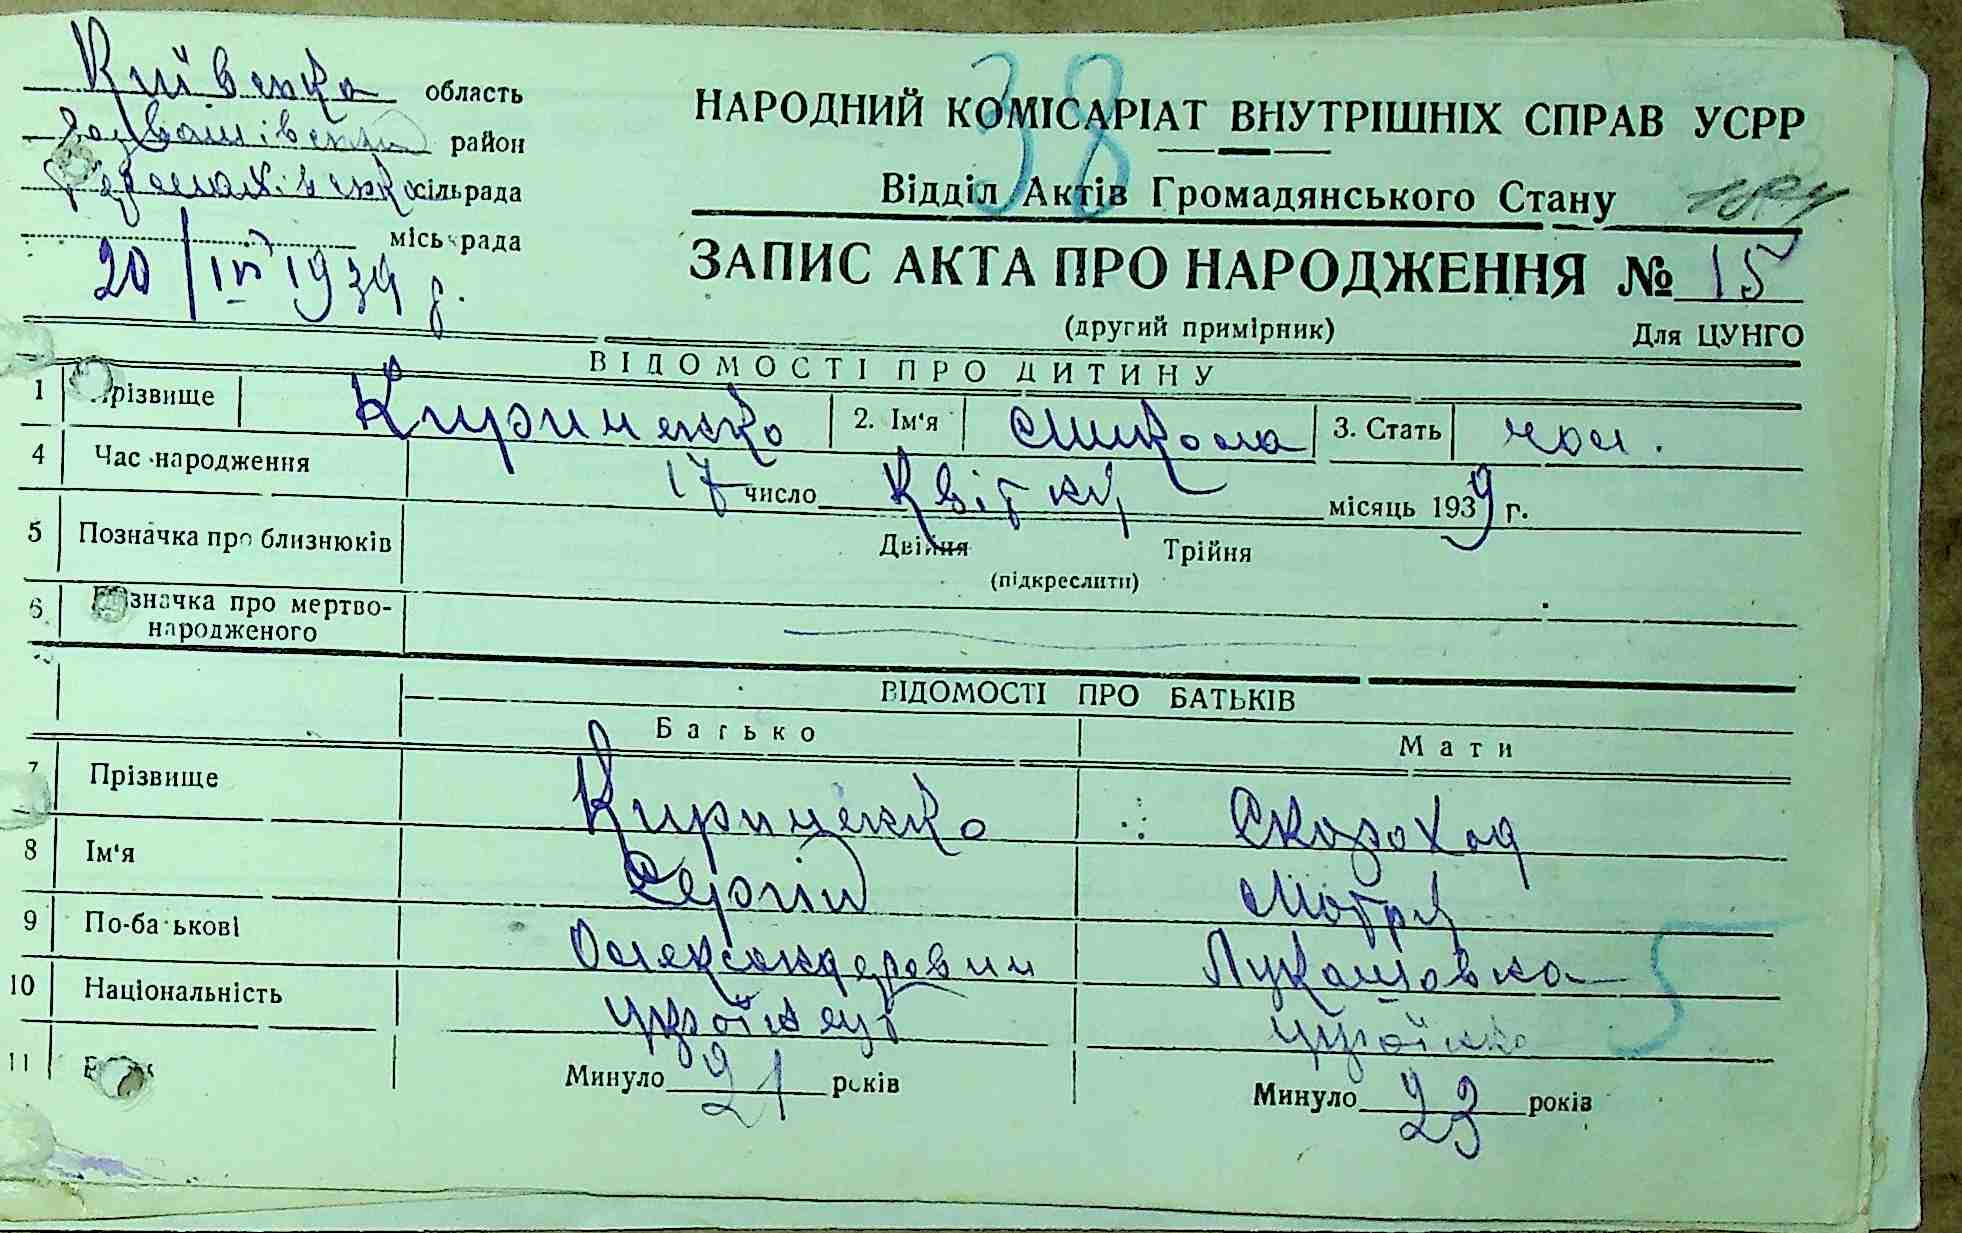 Київська область
район
сільрада
міськрада
20/IV 1939 г.
38
НАРОДНИЙ КОМІСАРІАТ ВНУТРІШНІХ СПРАВ УСРР
Відділ Актів Громадянського Стану
ЗАПИС АКТА ПРО НАРОДЖЕННЯ № 15
(другий примірник) Для ЦУНГО
ВІДОМОСТІ ПРО ДИТИНУ
1 Прізвище Кириченко 2. Ім'я Микола 3. Стать чол.
4 Час народження 17 число Квітня місяць 1939 г.
5 Позначка про близнюків Двійня Трійня
(підкреслити)
6 Позначка про мертво-
народженого
ВІДОМОСТІ ПРО БАТЬКІВ
Батько Мати
7 Прізвище Кириченко Скороход
8 Ім'я Сергій Мотря
9 По-батькові Олександрович Лукашовна
10 Національність українець українка
5
11 Минуло 21 років Минуло 23 років